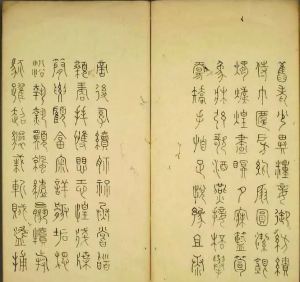 舊老少異糧妾御紡績
侍巾帷房紈扇圓潔銀
燭煒煌晝眠夕寐藍筍
象床弦歌酒宴接杯舉
觴矯手頓足悅豫且康
嫡後嗣續祭祀烝嘗稽
顙再拜悚懼恐惶牋牒
簡要顧答審詳骸垢想
浴執熱願涼驢騾犢特
駭躍超驤誅斬賊盜捕